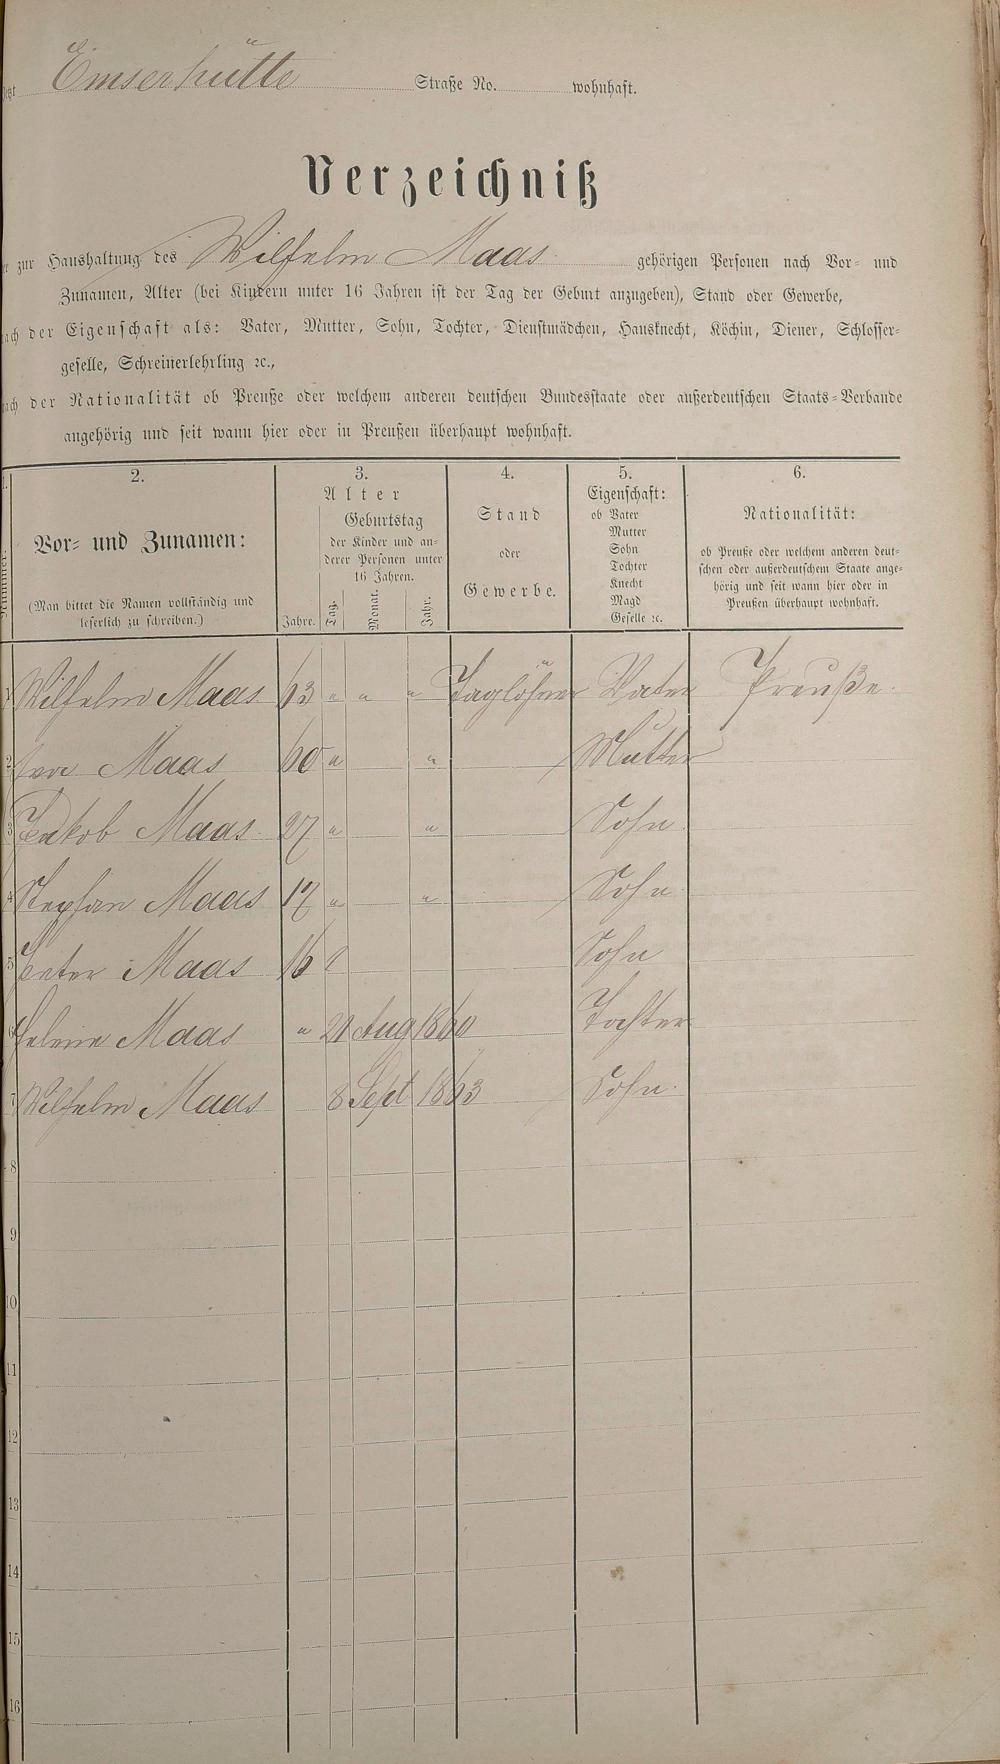 Emserhütte Straße No. wohnhaft.
Verzeichniß
zur Haushaltung des Wilhelm Maas gehörigen Personen nach Vor- und
Zunamen, Alter (bei Kindern unter 16 Jahren ist der Tag der Geburt anzugeben), Stand oder Gewerbe,
nach der Eigenschaft als: Vater, Mutter, Sohn, Tochter, Dienstmädchen, Hausknecht, Köchin, Diener, Schlosser-
geselle, Schreinerlehrling ꝛc.,
nach der Nationalität ob Preuße oder welchem anderen deutschen Bundesstaate oder außerdeutschen Staats-Verbande
angehörig und seit wann hier oder in Preußen überhaupt wohnhaft.
1. 2. 3. 4. 5. 6.
Nummer.
Vor- und Zunamen:
(Man bittet die Namen vollständig und
leserlich zu schreiben.)
Alter
Geburtstag
der Kinder und an-
derer Personen unter
16 Jahren.
Jahre. Tag. Monat. Jahr.
Stand
oder
Gewerbe.
Eigenschaft:
ob Vater
Mutter
Sohn
Tochter
Knecht
Magd
Geselle ꝛc.
Nationalität:
ob Preuße oder welchem anderen deut-
schen oder außerdeutschem Staate ange-
hörig und seit wann hier oder in
Preußen überhaupt wohnhaft.
1 Wilhelm Maas 63 " " " Taglöhner Vater Preuße.
2 Maas 60 " " Mutter
3 Jakob Maas 27 " " Sohn
4 Stephan Maas 17 " " Sohn
5 Peter Maas 16 Sohn
6 Helene Maas " 21 Aug 1860 Tochter
7 Wilhelm Maas 8 Sept 1863 Sohn
8
9
10
11
12
13
14
15
16